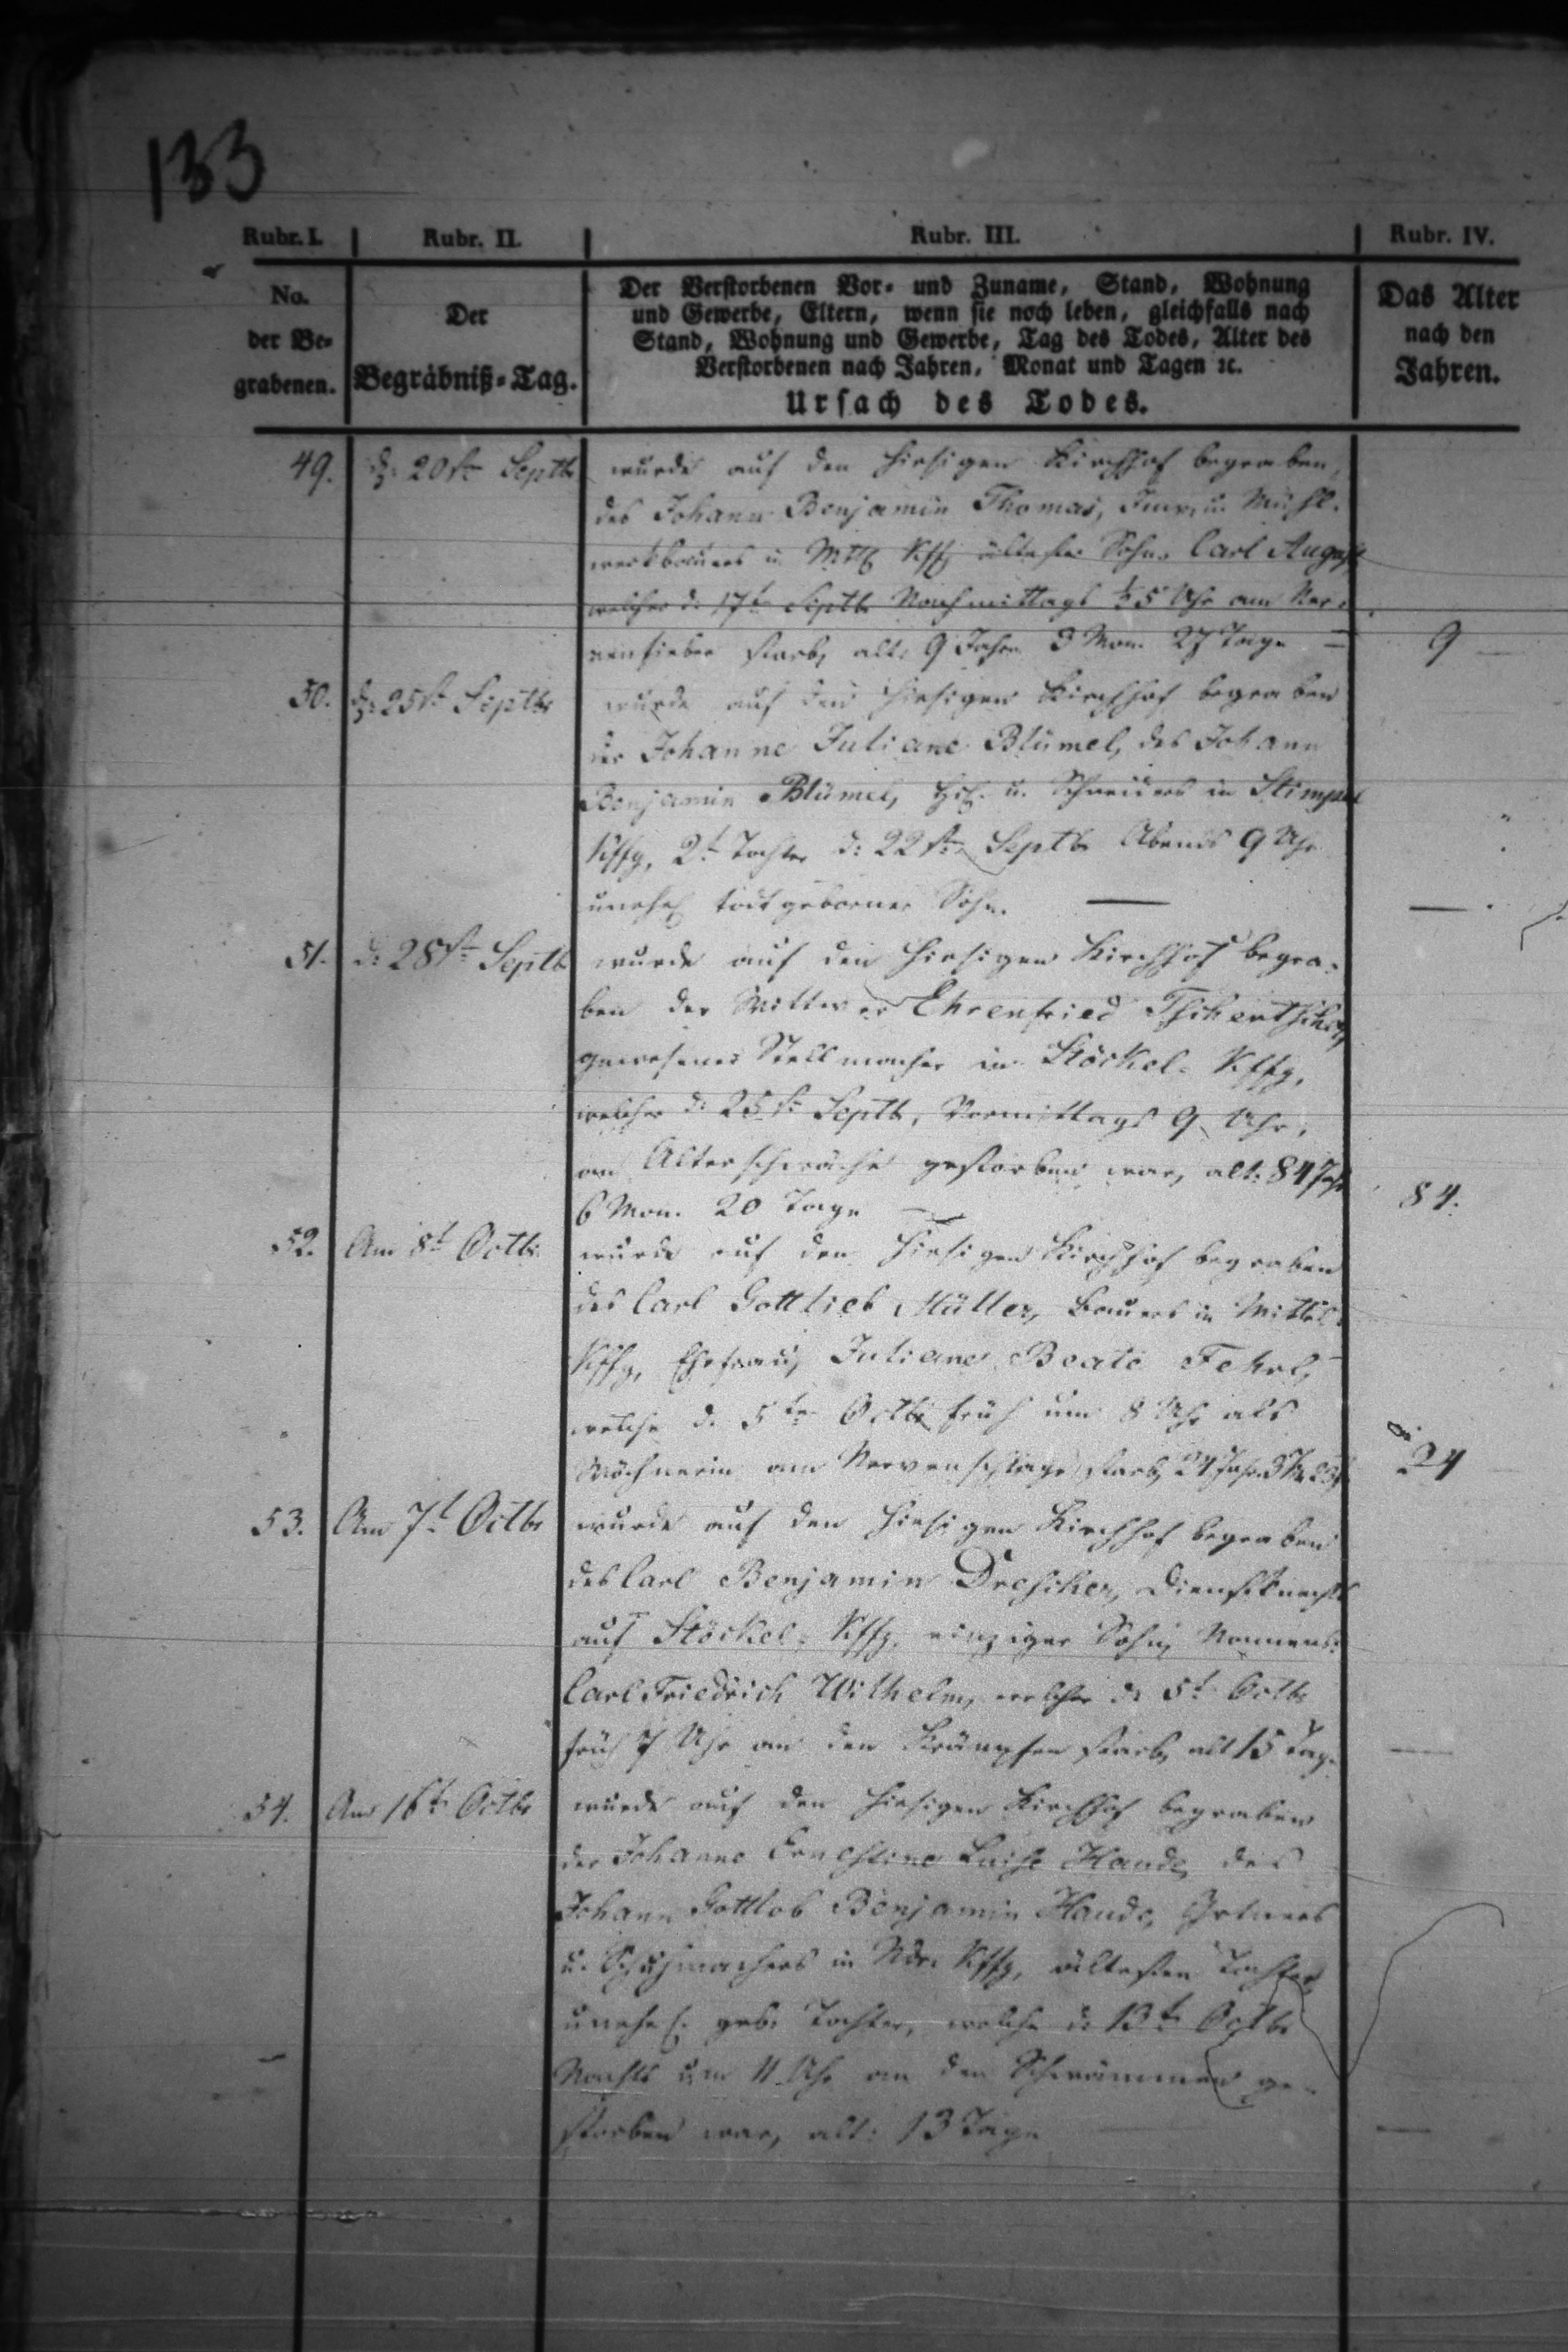 133
Rubr. I. Rubr. II. Rubr. III. Rubr. IV.
No. der Be- grabenen.
Der Begräbniß-Tag.
Der Verstorbenen Vor- und Zuname, Stand, Wohnung
und Gewerbe, Eltern, wenn sie noch leben, gleichfalls nach
Stand, Wohnung und Gewerbe, Tag des Todes, Alter des
Verstorbenen nach Jahren, Monat und Tagen ꝛc.
Ursach des Todes.
Das Alter nach den Jahren.
49. d: 20st Septb wurde auf den hiesigen Kirchhof begraben,
des Johann Benjamin Thomas, u. Mühl-
werkbauers in Kffg ältester Sohn Carl August
welcher d: 17t Septb Nachmittags ½5 Uhr am Ner-
venfieber starb, alt: 9 Jahre 3 Mon. 27 Tage — 9 —
50. d: 25st Septbr wurde auf den hiesigen Kirchhof begraben
der Johanne Juliane Blümel, des Johann
Benjamin Blümel, u. Schneiders in Stimpel
Kffg, 2t Tochter d: 22st Septb Abends 9 Uhr
unehel todtgeborner Sohn. — —
51. d: 28st Septb wurde auf den hiesigen Kirchhof begra-
ben der Wittwer Ehrenfried
gewesener Stellmacher in Stöckel-Kffg,
welcher d: 25st Septb, Vormittags 9 Uhr,
an Alterschwäche gestorben war, alt: 84 Jahr
6 Mon. 20 Tage — 84.
52. Am 8t Octbr. wurde auf den hiesigen Kirchhof begraben
des Carl Gottlieb Müller, Bauers in Mittel-
Kffg, Ehefrau, Juliane Beate
welche d. 5te Octbr früh um 8 Uhr als
Wöchnerin am Nervenschlage starb, 24 Jahr 3 M. 24
53. Am 7t Octbr wurde auf den hiesigen Kirchhof begraben
des Carl Benjamin Drescher, Dienstknechts
auf Stöckel-Kffg, einziger Sohn, Namens:
Carl Friedrich Wilhelm, welcher d. 5t Octbr
früh 7 Uhr an den Krämpfen starb, alt 15 Tage —
54. Am 16t Octbr wurde auf den hiesigen Kirchhof begraben
der Johanne Ernestine Luise Haude, des
Johann Gottlob Benjamin Haude,
u. Schuhmachers in Ndr. Kffg, ältesten Tochter
unehel. geb. Tochter, welche d: 13t Octbr
Nachts um 11 Uhr an den Schwämmen ge-
storben war, alt: 13 Tage — —